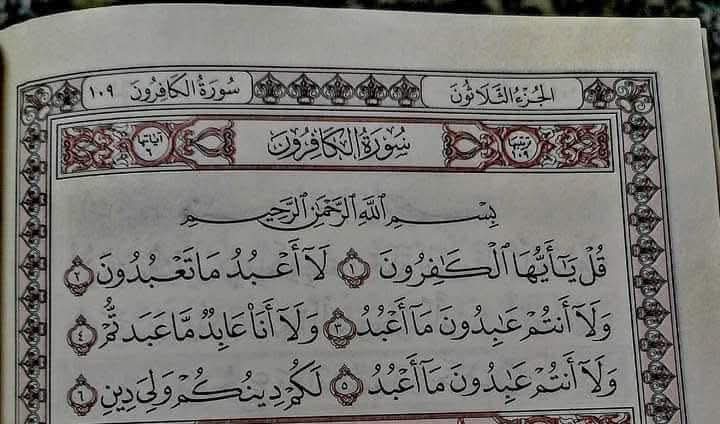 الجزء الثلاثون
سورة الكافرون ١٠٩
ترتيبها ١٠٩
سورة الكافرون
آياتها ٦
بِسْمِ ٱللَّهِ ٱلرَّحْمَٰنِ ٱلرَّحِيمِ
قُلْ يَٰٓأَيُّهَا ٱلْكَٰفِرُونَ ١ لَآ أَعْبُدُ مَا تَعْبُدُونَ ٢
وَلَآ أَنتُمْ عَٰبِدُونَ مَآ أَعْبُدُ ٣ وَلَآ أَنَا۠ عَابِدٌ مَّا عَبَدتُّمْ ٤
وَلَآ أَنتُمْ عَٰبِدُونَ مَآ أَعْبُدُ ٥ لَكُمْ دِينُكُمْ وَلِىَ دِينِ ٦